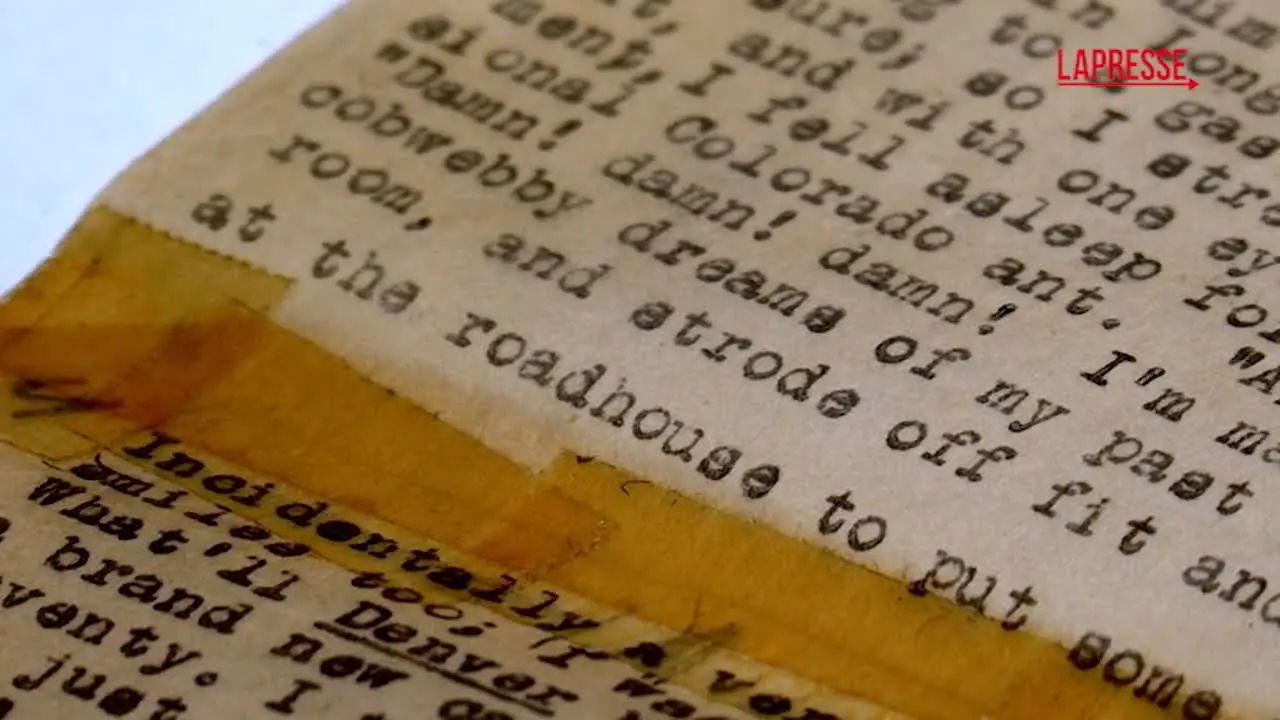 him
in Long
to gas
sure; so I stra
it, and with one ey
ment, I fell asleep for
sional Colorado ant. "A
"Damn! damn! damn! I'm ma
cobwebby dreams of my past
room, and strode off fit and
at the roadhouse to put some
Incidentally a ver
smiles too; I wa
What'll Denver
brand new
venty. I
just
LAPRESSE